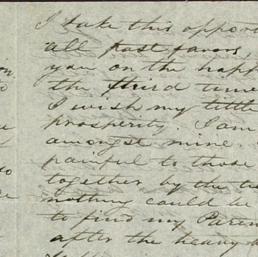 I take this oppor
all past favors,
you on the happ
the third time
I wish my little
prosperity. I am
amongst mine.
painful to those
together by the
nothing could be
to find my Paren
after the heavy